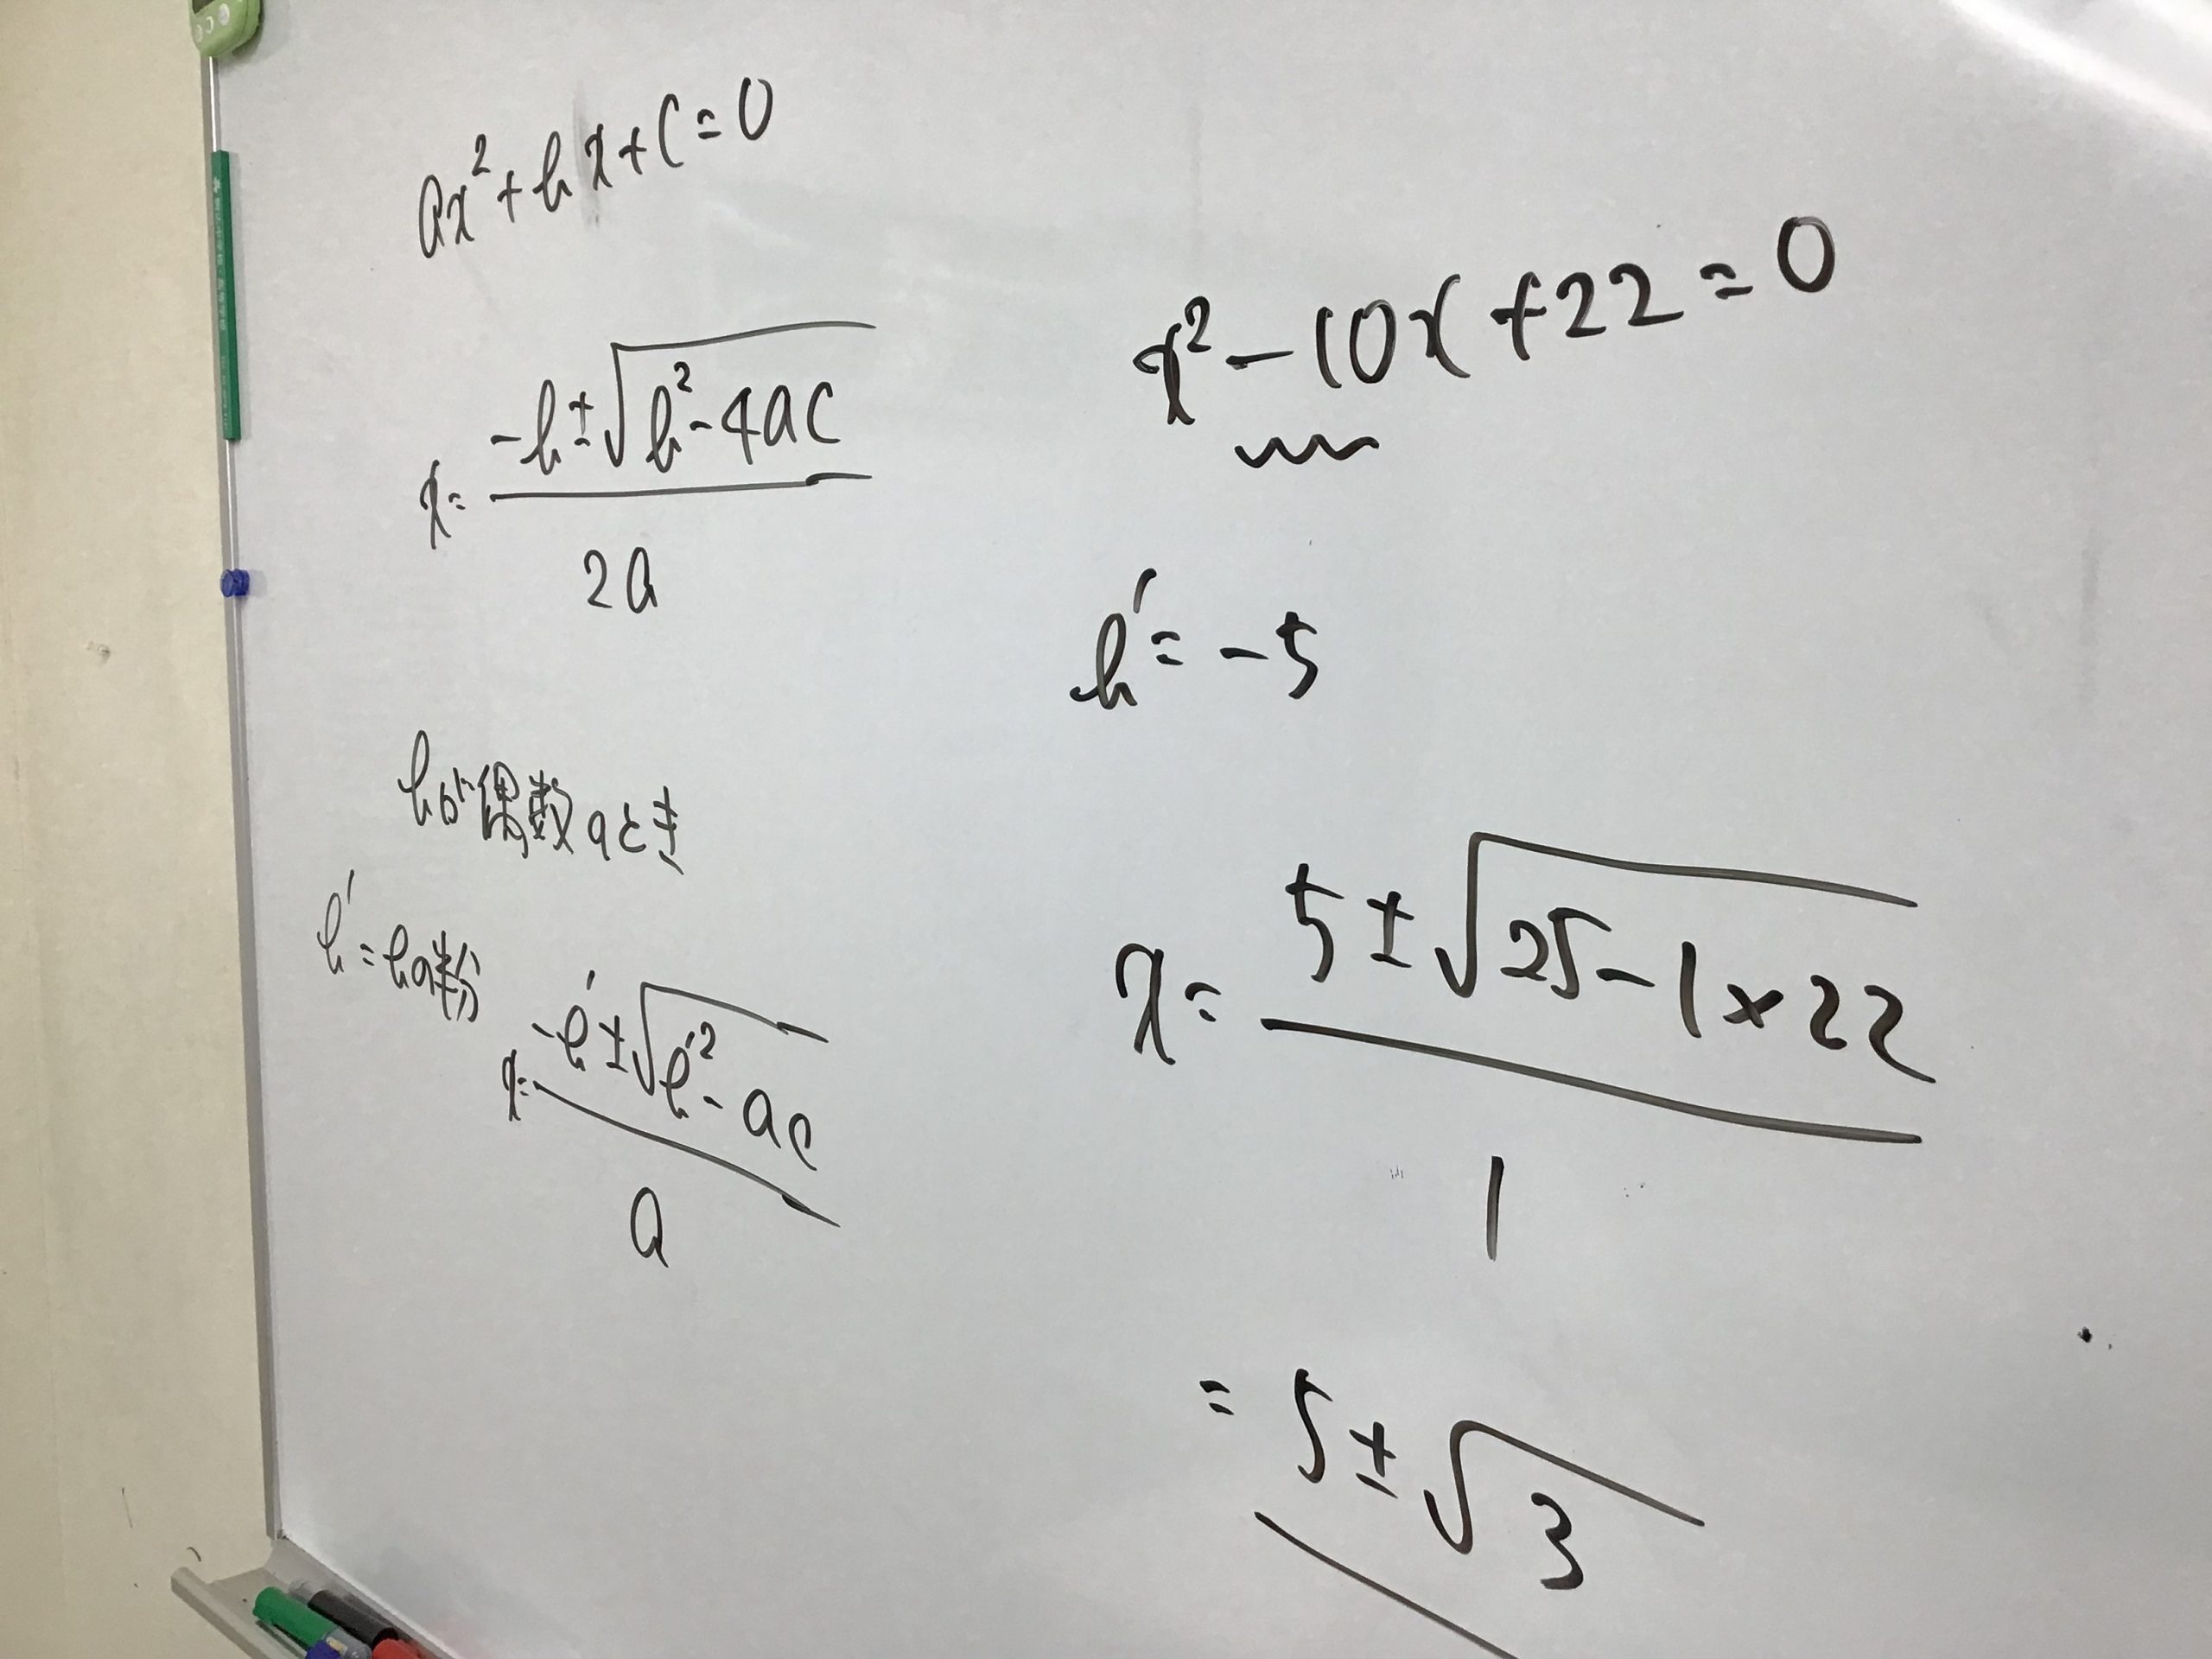 ax²+bx+c=0
x=(-b±√(b²-4ac))/2a
bが偶数のとき
b'=bの半分
x=(-b'±√(b'²-ac))/a
x²-10x+22=0
b'=-5
x=(5±√(25-1×22))/1
=5±√3